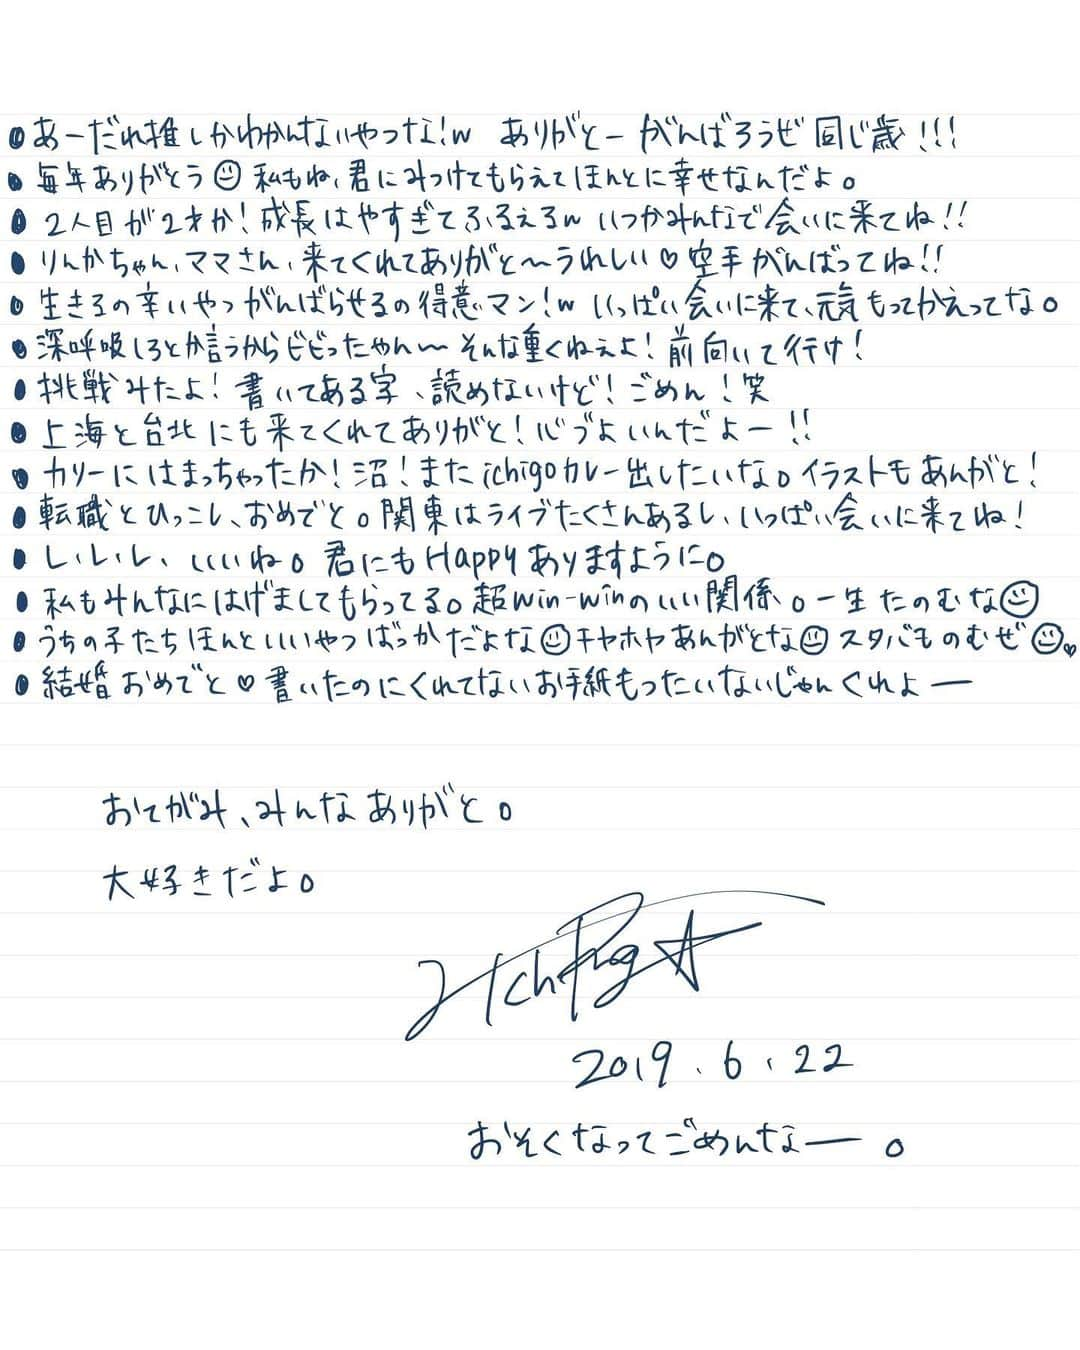 ●あーだれ推しかわかんないやつな!w ありがとー がんばろうぜ 同じ歳!!!
●毎年ありがとう☺ 私もね、君にみつけてもらえてほんとに幸せなんだよ。
●2人目が2才か!成長はやすぎてふるえるw いつかみんなで会いに来てね!!
●りんかちゃん、ママさん、来てくれてありがと〜うれしい♡空手がんばってね!!
●生きるの辛いやつがんばらせるの得意マン!w いっぱい会いに来て、元気もってかえってな。
●深呼吸しろとか言うからビビったやん〜 そんな重くねぇよ!前向いて行け!
●挑戦みたよ!書いてある字、読めないけど!ごめん!笑
●上海と台北にも来てくれてありがと!心づよいんだよー!!
●カリーにはまっちゃったか!沼!またichigoカレー出したいな。イラストもあんがと!
●転職とひっこし、おめでと。関東はライブたくさんあるし、いっぱい会いに来てね!
●しいしい、いいね。君にもHappyありますように。
●私もみんなにはげましてもらってる。超win-winのいい関係。一生たのむな☺
●うちの子たちほんといいやつばっかだよな☺チヤホヤあんがとな☺スタバものむぜ☺♡
●結婚おめでと♡書いたのにくれてないお手紙もったいないじゃんくれよー
おてがみ、みんなありがと。
大好きだよ。
2019.6.22
おそくなってごめんなー。